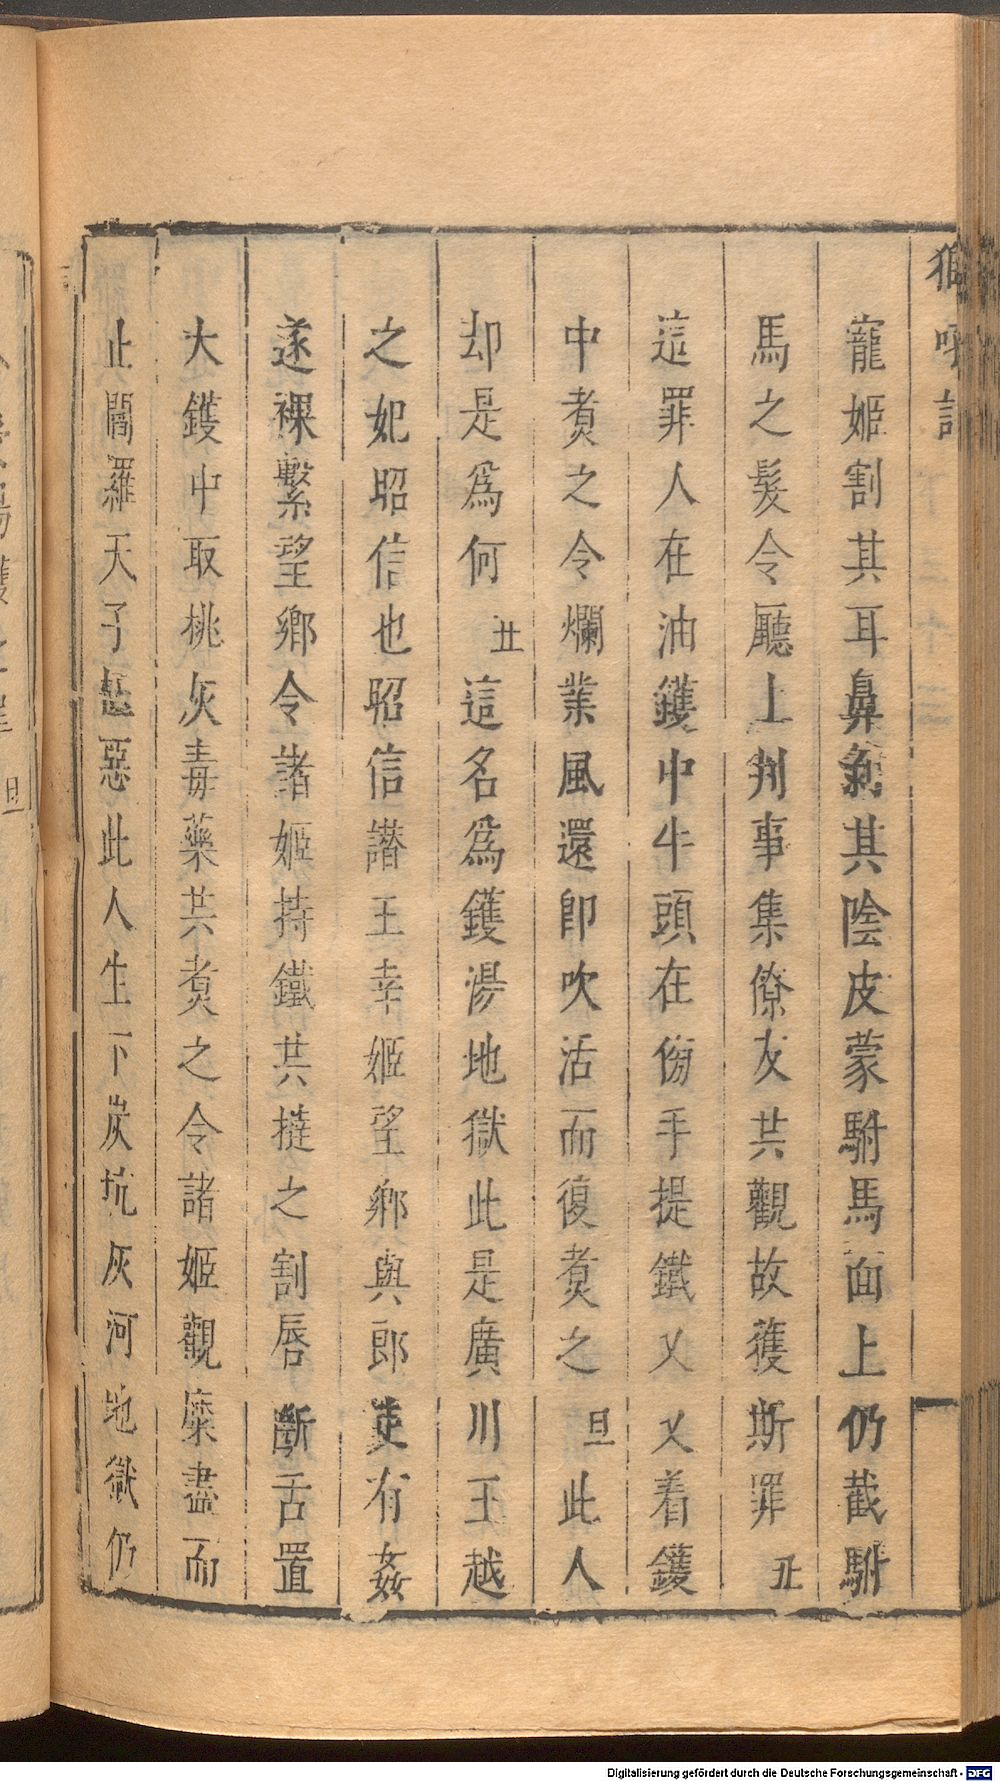 寵姬割其耳鼻剝其陰皮蒙駙馬面上仍截駙
馬之髮令廳上判事集僚友共觀故獲斯罪丑
這罪人在油鑊中牛頭在傍手提鐵乂乂着鑊
中煑之令爛業風還卽吹活而復煑之旦此人
却是爲何丑這名爲鑊湯地獄此是廣川王越
之妃昭信也昭信譖王幸姬望鄉與郎吏有姦
遂裸繫望鄉令諸姬持鐵共撻之割唇斷舌置
大鑊中取桃灰毒藥共煑之令諸姬觀糜盡而
止閻羅天子惡此人生下炭坑灰河地獄仍
Digitalisierung gefördert durch die Deutsche Forschungsgemeinschaft - DFG